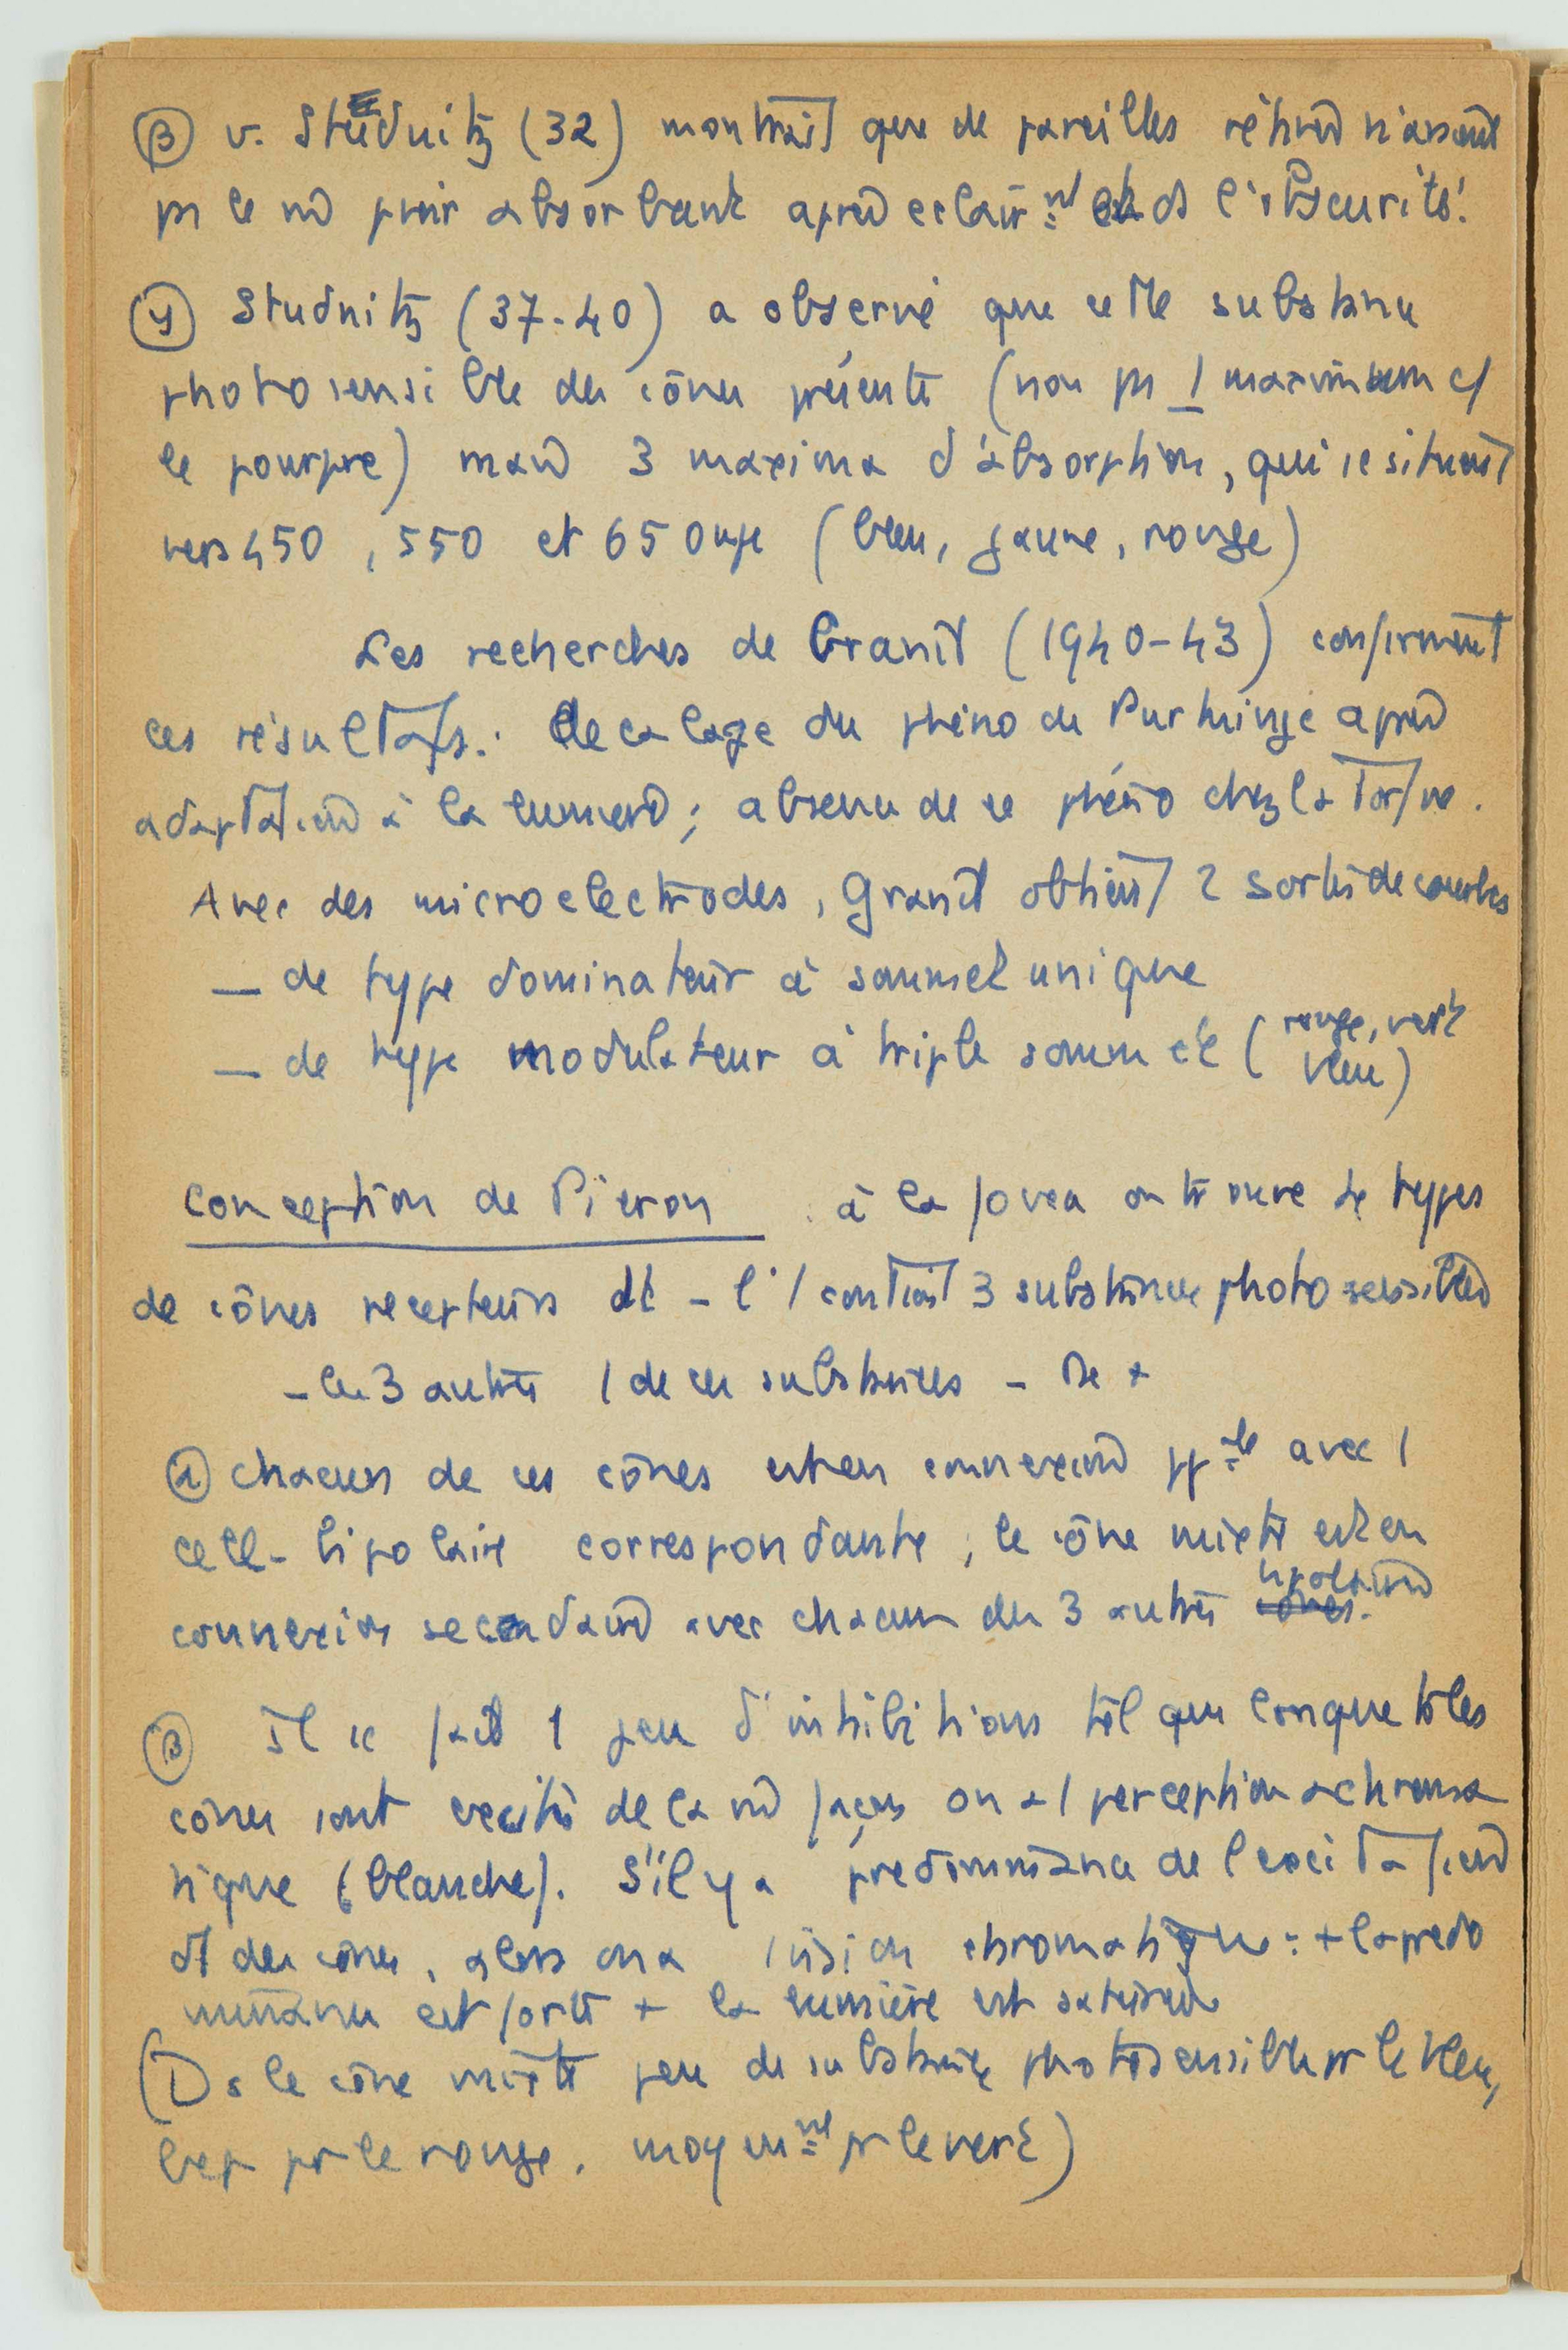 β v. Studnitz (32) montrait que de pareilles rétines n'avaient
ps le m̂ pvoir absorbant après éclair.nt et ds l'obscurité.
γ Studnitz (37-40) a observé que cette substance
photosensible des cônes présente (non ps 1 maximum c/
le pourpre) mais 3 maxima d'absorption, qui se situent
vers 450, 550 et 650 mμ (bleu, jaune, rouge)
Les recherches de Granit (1940-43) confirment
ces résultats : décalage du phéno de Purkinje après
adaptation à la lumière ; absence de ce phéno chez la Tortue.
Avec des microélectrodes, Granit obtient 2 sortes de courbes
— de type dominateur à sommet unique
— de type modulateur à triple sommet (rouge, vert
bleu)
Conception de Piéron à la fovea on trouve 4 types
de cônes récepteurs dt - l'1 contient 3 substances photosensibles
- les 3 autres 1 de ces substances - De +
α chacun de ces cônes est en connexion pp.le avec 1
cell. bipolaire correspondante, le cône mixte est en
connexion secondaire avec chacun des 3 autres cônes. bipolaires
β Il se fait 1 jeu d'inhibitions tel que lorsque ts les
cônes sont excités de la m̂ façon on a 1 perception achroma
tique (blanche). S'il y a prédominance de l'excitation
d'1 des cônes, alors on a vision chromatique : + la prédo
minance est forte + la lumière est saturée
(Ds le cône mixte peu de substance photosensible pr le bleu,
bcp pr le rouge, moyen.nt pr le vert)